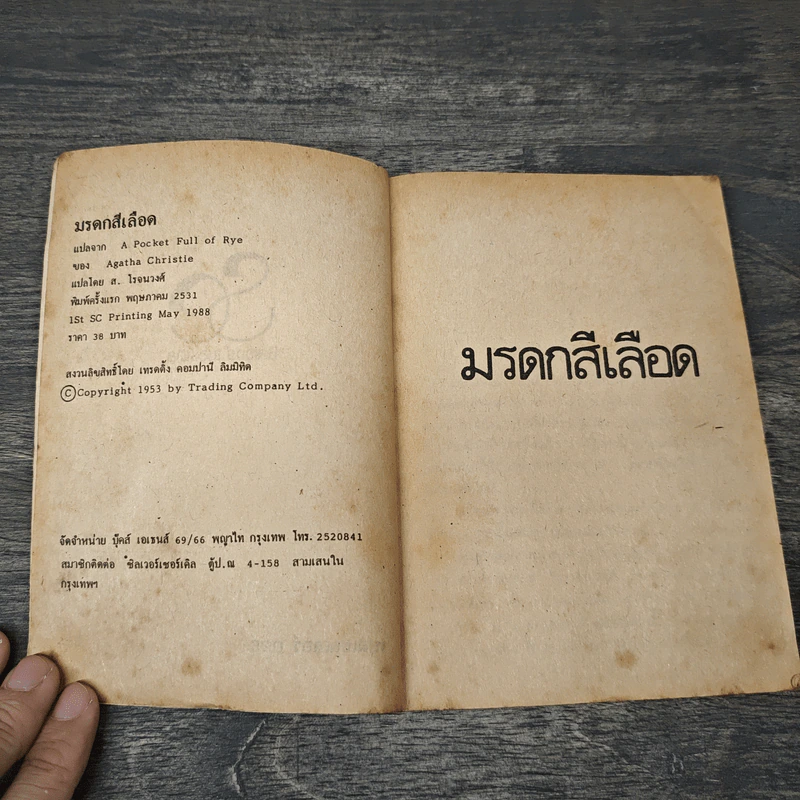 มรดกสีเลือด
แปลจาก A Pocket Full of Rye
ของ Agatha Christie
แปลโดย ส. โรจนวงศ์
พิมพ์ครั้งแรก พฤษภาคม 2531
1St SC Printing May 1988
ราคา 38 บาท
สงวนลิขสิทธิ์โดย เทรดดิ้ง คอมปานี ลิมมิทิด
©Copyright 1953 by Trading Company Ltd.
จัดจำหน่าย บุ๊คส์ เอเยนส์ 69/66 พญาไท กรุงเทพ โทร. 2520841
สมาชิกติดต่อ ซิลเวอร์เซอร์เคิล ตู้ป.ณ 4-158 สามเสนใน
กรุงเทพฯ
มรดกสีเลือด